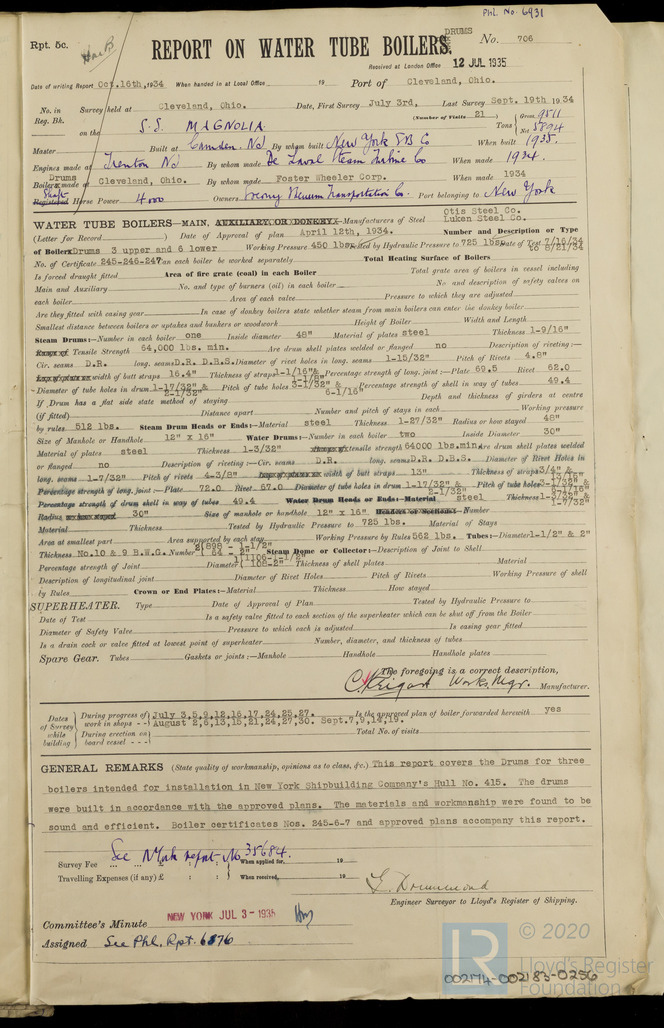 PHL. No. 6931
Rpt. 5c.
REPORT ON WATER TUBE BOILERS, DRUMS No. 706
Received at London Office 12 JUL 1935
Date of writing Report Oct.16th,1934 When handed in at Local Office 19 Port of Cleveland, Ohio.
No. in Reg. Bk. Survey held at Cleveland, Ohio. Date, First Survey July 3rd, Last Survey Sept. 19th 1934
(Number of Visits 21
on the S.S. MAGNOLIA Tons Gross 9511 Net 5894
Master Built at Camden, NJ By whom built New York SB Co When built 1935.
Engines made at Trenton NJ By whom made De Laval Steam Turbine Co When made 1934.
Drums Boilers made at Cleveland, Ohio. By whom made Foster Wheeler Corp. When made 1934
Shaft Registered Horse Power 4000 Owners Socony Vacuum Transportation Co. Port belonging to New York
WATER TUBE BOILERS—MAIN, AUXILIARY OR DONKEY.—Manufacturers of Steel Otis Steel Co. Luken Steel Co.
(Letter for Record ) Date of Approval of plan April 12th, 1934. Number and Description or Type
of Boilers Drums 3 upper and 6 lower Working Pressure 450 lbs. Tested by Hydraulic Pressure to 725 lbs. Date of Test 7/16/34 to 8/21/34
No. of Certificate 245-246-247 Can each boiler be worked separately Total Heating Surface of Boilers
Is forced draught fitted Area of fire grate (coal) in each Boiler Total grate area of boilers in vessel including
Main and Auxiliary No. and type of burners (oil) in each boiler No and description of safety valves on
each boiler Area of each valve Pressure to which they are adjusted
Are they fitted with easing gear In case of donkey boilers state whether steam from main boilers can enter the donkey boiler
Smallest distance between boilers or uptakes and bunkers or woodwork Height of Boiler Width and Length
Steam Drums:—Number in each boiler one Inside diameter 48" Material of plates steel Thickness 1-9/16"
Range of Tensile Strength 64,000 lbs. min. Are drum shell plates welded or flanged no Description of riveting:—
Cir. seams D.R. long. seams D.R. D.B.S. Diameter of rivet holes in long. seams 1-15/32" Pitch of Rivets 4.8"
Lap of plates or width of butt straps 16.4" Thickness of straps 1-1/16" & 1-1/8" Percentage strength of long. joint:—Plate 69.5 Rivet 62.0
Diameter of tube holes in drum 1-17/32" & 2-1/32" Pitch of tube holes 3-1/32" & 6-1/16" Percentage strength of shell in way of tubes 49.4
If Drum has a flat side state method of staying Depth and thickness of girders at centre
(if fitted) Distance apart Number and pitch of stays in each Working pressure
by rules 512 lbs. Steam Drum Heads or Ends:—Material steel Thickness 1-27/32" Radius or how stayed 48"
Size of Manhole or Handhole 12" x 16" Water Drums:—Number in each boiler two Inside Diameter 30"
Material of plates steel Thickness 1-3/32" Range of tensile strength 64000 lbs.min. Are drum shell plates welded
or flanged no Description of riveting:—Cir. seams D.R. long. seams D.R. D.B.S. Diameter of Rivet Holes in
long. seams 1-7/32" Pitch of rivets 4-3/8" Lap of plates or width of butt straps 13" Thickness of straps 3/4" &
Percentage strength of long. joint:—Plate 72.0 Rivet 57.0 Diameter of tube holes in drum 1-17/32" & 2-1/32" Pitch of tube holes 3-1/32" &
Percentage strength of drum shell in way of tubes 49.4 Water Drum Heads or Ends:—Material steel Thickness 1-3/32" & 1-7/32"
Radius or how stayed 30" Size of manhole or handhole 12" x 16" Headers or Sections:—Number
Material Thickness Tested by Hydraulic Pressure to 725 lbs. Material of Stays
Area at smallest part Area supported by each stay Working Pressure by Rules 562 lbs. Tubes:—Diameter 1-1/2" & 2"
Thickness No.10 & 9 B.W.G. Number 2(898 - 1-1/2" ( 64 - 2" 1(1106-1-1/2" Steam Dome or Collector:—Description of Joint to Shell
Percentage strength of Joint Diameter (108-2" Thickness of shell plates Material
Description of longitudinal joint Diameter of Rivet Holes Pitch of Rivets Working Pressure of shell
by Rules Crown or End Plates:—Material Thickness How stayed
SUPERHEATER. Type Date of Approval of Plan Tested by Hydraulic Pressure to
Date of Test Is a safety valve fitted to each section of the superheater which can be shut off from the Boiler
Diameter of Safety Valve Pressure to which each is adjusted Is easing gear fitted
Is a drain cock or valve fitted at lowest point of superheater Number, diameter, and thickness of tubes
Spare Gear. Tubes Gaskets or joints:—Manhole Handhole Handhole plates
The foregoing is a correct description,
Works Mgr. Manufacturer.
Dates of Survey while building During progress of work in shops - - July 3,5,9,12,16,17,24,25,27. August 2,6,13,15,21,24,27,30. Sept.7,9,14,19. Is the approved plan of boiler forwarded herewith yes
During erection on board vessel - - - Total No. of visits
GENERAL REMARKS (State quality of workmanship, opinions as to class, &c.) This report covers the Drums for three
boilers intended for installation in New York Shipbuilding Company's Hull No. 415. The drums
were built in accordance with the approved plans. The materials and workmanship were found to be
sound and efficient. Boiler certificates Nos. 245-6-7 and approved plans accompany this report.
See N York report No 35684.
Survey Fee ... ... £ : : When applied for, 19
Travelling Expenses (if any) £ : : When received, 19
L. Drummond
Engineer Surveyor to Lloyd's Register of Shipping.
Committee's Minute NEW YORK JUL 3 - 1935
Assigned See Phl. Rpt. 6876
© 2020
LR
Lloyd's Register
Foundation
002174-002183-0256